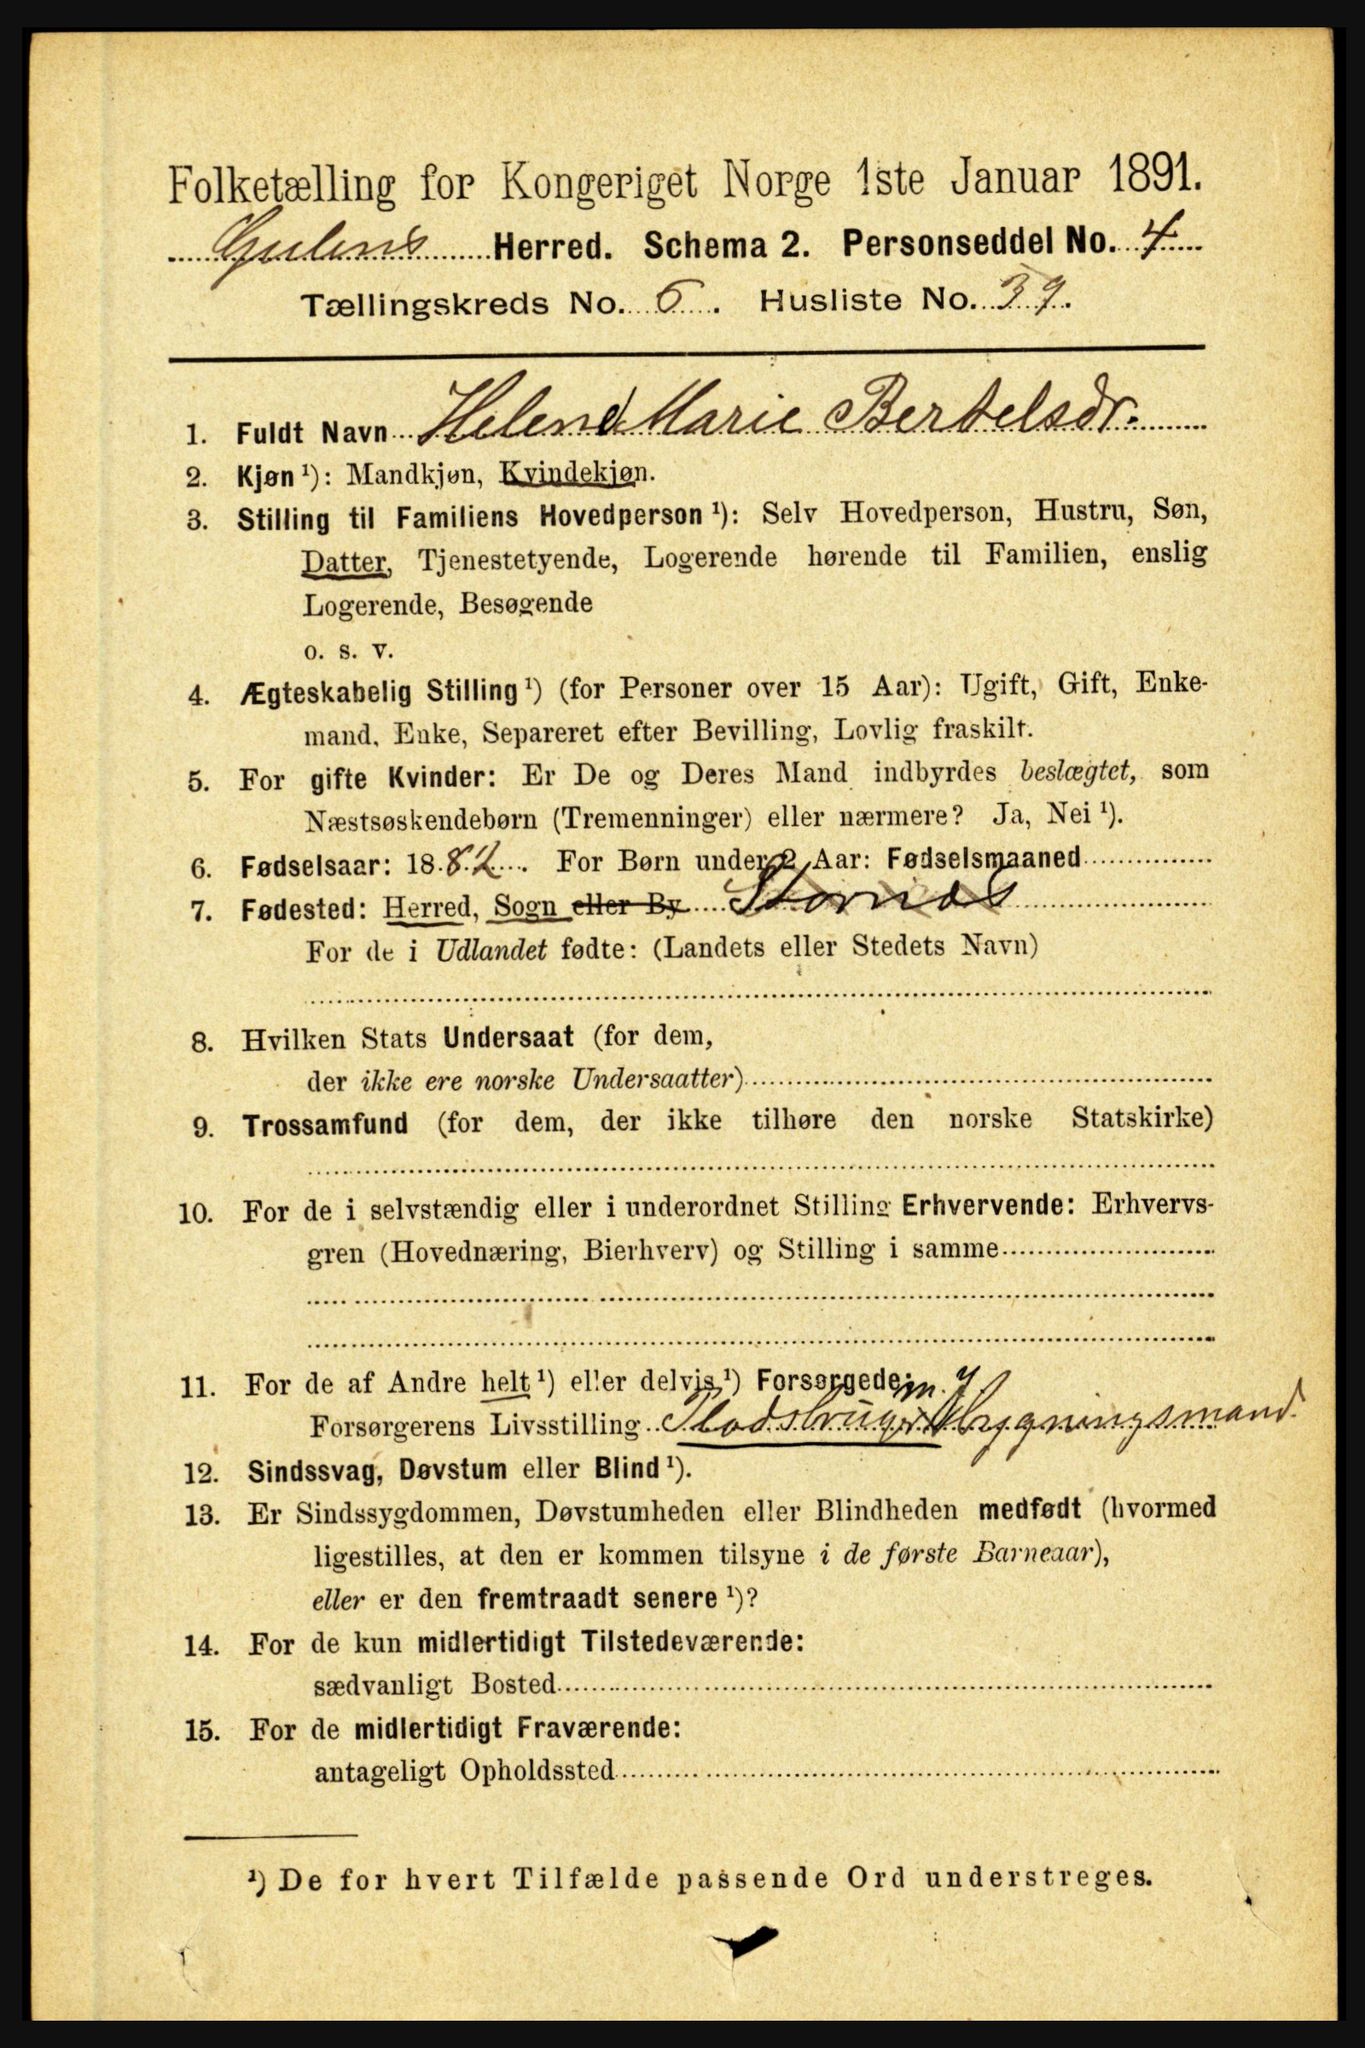 Folketælling for Kongeriget Norge 1ste Januar 1891.
Gulens Herred. Schema 2. Personseddel No. 4
Tællingskreds No. 6. Husliste No. 39.
1. Fuldt Navn Helene Marie Bertelsdr.
2. Kjøn ¹): Mandkjøn, Kvindekjøn.
3. Stilling til Familiens Hovedperson ¹): Selv Hovedperson, Hustru, Søn,
Datter, Tjenestetyende, Logerende hørende til Familien, enslig
Logerende, Besøgende
o. s. v.
4. Ægteskabelig Stilling ¹) (for Personer over 15 Aar): Ugift, Gift, Enke-
mand, Enke, Separeret efter Bevilling, Lovlig fraskilt.
5. For gifte Kvinder: Er De og Deres Mand indbyrdes beslægtet, som
Næstsøskendebørn (Tremenninger) eller nærmere? Ja, Nei ¹).
6. Fødselsaar: 1882. For Børn under 2 Aar: Fødselsmaaned
7. Fødested: Herred, Sogn eller By
For de i Udlandet fødte: (Landets eller Stedets Navn)
8. Hvilken Stats Undersaat (for dem,
der ikke ere norske Undersaatter)
9. Trossamfund (for dem, der ikke tilhøre den norske Statskirke)
10. For de i selvstændig eller i underordnet Stilling Erhvervende: Erhvervs-
gren (Hovednæring, Bierhverv) og Stilling i samme
11. For de af Andre helt ¹) eller delvis ¹) Forsørgede:
Forsørgerens Livsstilling
12. Sindssvag, Døvstum eller Blind ¹).
13. Er Sindssygdommen, Døvstumheden eller Blindheden medfødt (hvormed
ligestilles, at den er kommen tilsyne i de første Barneaar),
eller er den fremtraadt senere ¹)?
14. For de kun midlertidigt Tilstedeværende:
sædvanligt Bosted
15. For de midlertidigt Fraværende:
antageligt Opholdssted
¹) De for hvert Tilfælde passende Ord understreges.